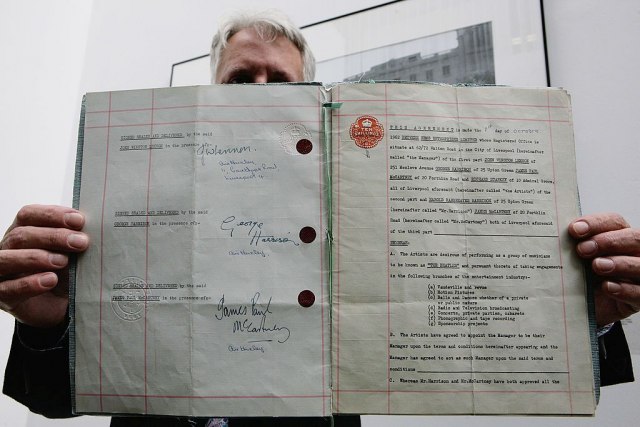 SIGNED SEALED AND DELIVERED by the said
JOHN WINSTON LENNON in the presence of:-
JWLennon.
SIGNED SEALED AND DELIVERED by the said
GEORGE HARRISON in the presence of:-
George
Harrison
SIGNED SEALED AND DELIVERED by the said
JAMES PAUL McCARTNEY in the presence of:-
James Paul
McCartney
TEN SHILLINGS
THIS AGREEMENT is made the 1st day of October
1962 BETWEEN NEMS ENTERPRISES LIMITED whose Registered Office is
situate at 62/72 Walton Road in the City of Liverpool (hereinafter
called "the Manager") of the first part JOHN WINSTON LENNON of
251 Menlove Avenue GEORGE HARRISON of 25 Upton Green JAMES PAUL
McCARTNEY of 20 Forthlin Road and RICHARD STARKEY of 10 Admiral Grove,
all of Liverpool aforesaid (hereinafter called "the Artists") of the
second part HAROLD HARGREAVES HARRISON of 25 Upton Green
(hereinafter called "Mr.Harrison") JAMES McCARTNEY of 20 Forthlin
Road (hereinafter called "Mr.McCartney") both of Liverpool aforesaid
of the third part
WHEREAS:
A. The Artists are desirous of performing as a group of musicians
to be known as "THE BEATLES" and pursuant thereto of taking engagements
in the following branches of the entertainment industry:-
(a) Vaudeville and revue
(b) Motion Pictures
(c) Balls and Dances whether of a private
or public nature
(d) Radio and Television broadcasting
(e) Concerts, private parties, cabarets
(f) Phonographic and tape recording
(g) Sponsorship projects
B. The Artists have agreed to appoint the Manager to be their
Manager upon the terms and conditions hereinafter appearing and the
Manager has agreed to act as such Manager upon the said terms and
conditions
C. Whereas Mr.Harrison and Mr.McCartney have both approved all the